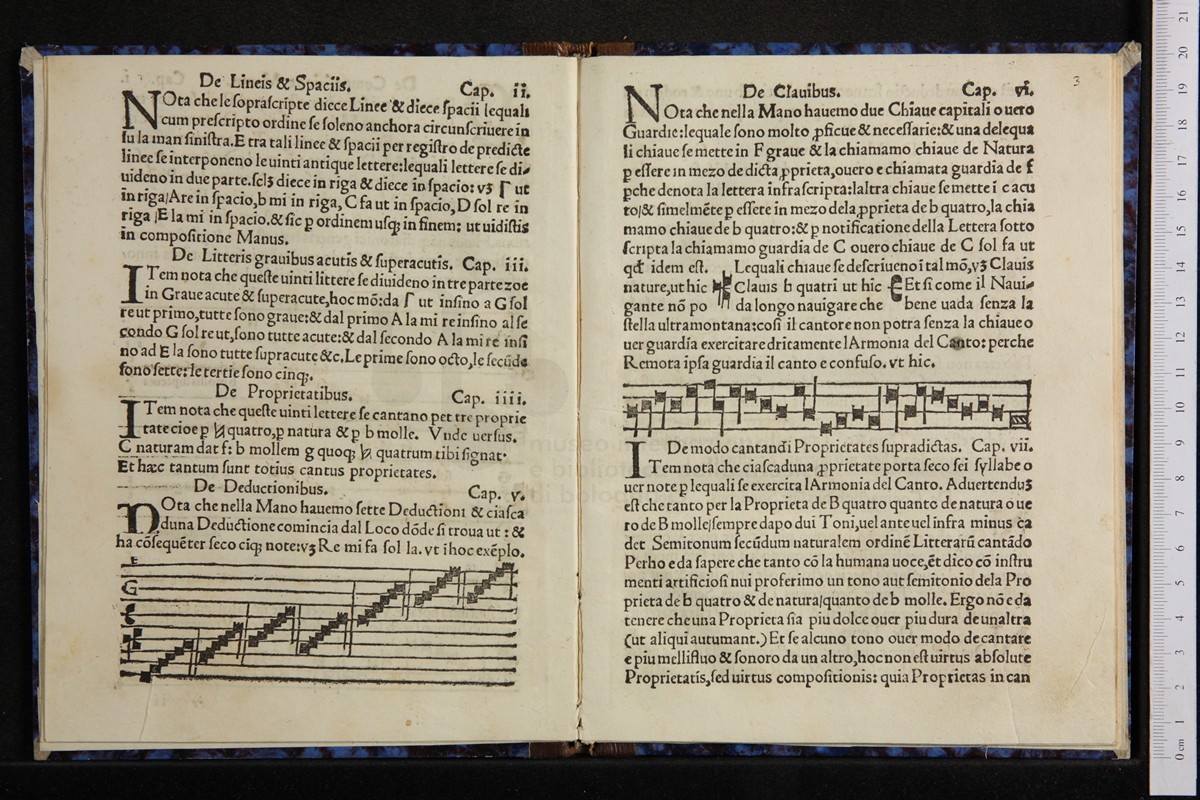 De Lineis & Spaciis. Cap. ii.
NOta che le soprascripte diece Linee & diece spacii lequali
cum prescripto ordine se soleno anchora circunscriuere in
su la man sinistra. E tra tali linee & spacii per registro de predicte
linee se interponeno le uinti antique lettere: lequali lettere se di/
uideno in due parte. sclꝫ diece in riga & diece in spacio: vꝫ Γ ut
in riga/Are in spacio, b mi in riga, C fa ut in spacio, D sol re in
riga /E la mi in spacio. & sic p ordinem usqꝫ in finem: ut uidistis
in compositione Manus.
De Litteris grauibus acutis & superacutis. Cap. iii.
ITem nota che queste uinti littere se diuideno in tre parte zoe
in Graue acute & superacute, hoc mō: da Γ ut insino a G sol
re ut primo, tutte sono graue: & dal primo A la mi re insino al se
condo G sol re ut, sono tutte acute: & dal secondo A la mi re insi
no ad E la sono tutte supracute &c. Le prime sono octo, le secūde
sono sette: le tertie sono cinqꝫ.
De Proprietatibus. Cap. iiii.
ITem nota che queste uinti lettere se cantano per tre proprie
tate cioe p ♮ quatro, p natura & p b molle. Vnde uersus.
C naturam dat f: b mollem g quoqꝫ ♮ quatrum tibi signat.
Et hæc tantum sunt totius cantus proprietates.
De Deductionibus. Cap. v.
NOta che nella Mano hauemo sette Deductioni & ciasca
duna Deductione comincia dal Loco dōde si troua ut : &
ha cōsequēter seco ciqꝫ note: vꝫ Re mi fa sol la. vt i hoc exēplo.
E
G
3
De Clauibus. Cap. vi.
NOta che nella Mano hauemo due Chiaue capitali o uero
Guardie: lequale sono molto ꝓficue & necessarie: & una delequa
li chiaue se mette in F graue & la chiamamo chiaue de Natura
p essere in mezo de dicta ꝓprieta, ouero e chiamata guardia de f
pche denota la lettera infrascripta: laltra chiaue se mette i c acu
to/& simelmēte p essere in mezo dela ꝓprieta de b quatro, la chia
mamo chiaue de b quatro: & p notificatione della Lettera sotto
scripta la chiamamo guardia de C ouero chiaue de C sol fa ut
qd idem est. Lequali chiaue se descriueno i tal mō, vꝫ Clauis
nature, ut hic Clauis b quatri ut hic Et si come il Naui/
gante nō po da longo nauigare che bene uada senza la
stella ultramontana: cosi il cantore non potra senza la chiaue o
uer guardia exercitare dritamente lArmonia del Canto: perche
Remota ipsa guardia il canto e confuso. vt hic.
De modo cantandi Proprietates supradictas. Cap. vii.
ITem nota che ciascaduna ꝓprietate porta seco sei syllabe o
uer note p lequali se exercita lArmonia del Canto. Aduertenduꝫ
est che tanto per la Proprieta de B quatro quanto de natura o ue
ro de B molle/sempre dapo dui Toni, uel ante uel infra minus ca
det Semitonum secūdum naturalem ordinē Litterarū cantādo
Perho e da sapere che tanto cō la humana uoce, ēt dico cō instru
menti artificiosi nui proferimo un tono aut semitonio dela Pro
prieta de b quatro & de natura/quanto de b molle. Ergo nō e da
tenere che una Proprieta sia piu dolce ouer piu dura de unaltra
(ut aliqui autumant.) Et se alcuno tono ouer modo de cantare
e piu mellifluo & sonoro da un altro, hoc non est uirtus absolute
Proprietatis, sed uirtus compositionis: quia Proprietas in can